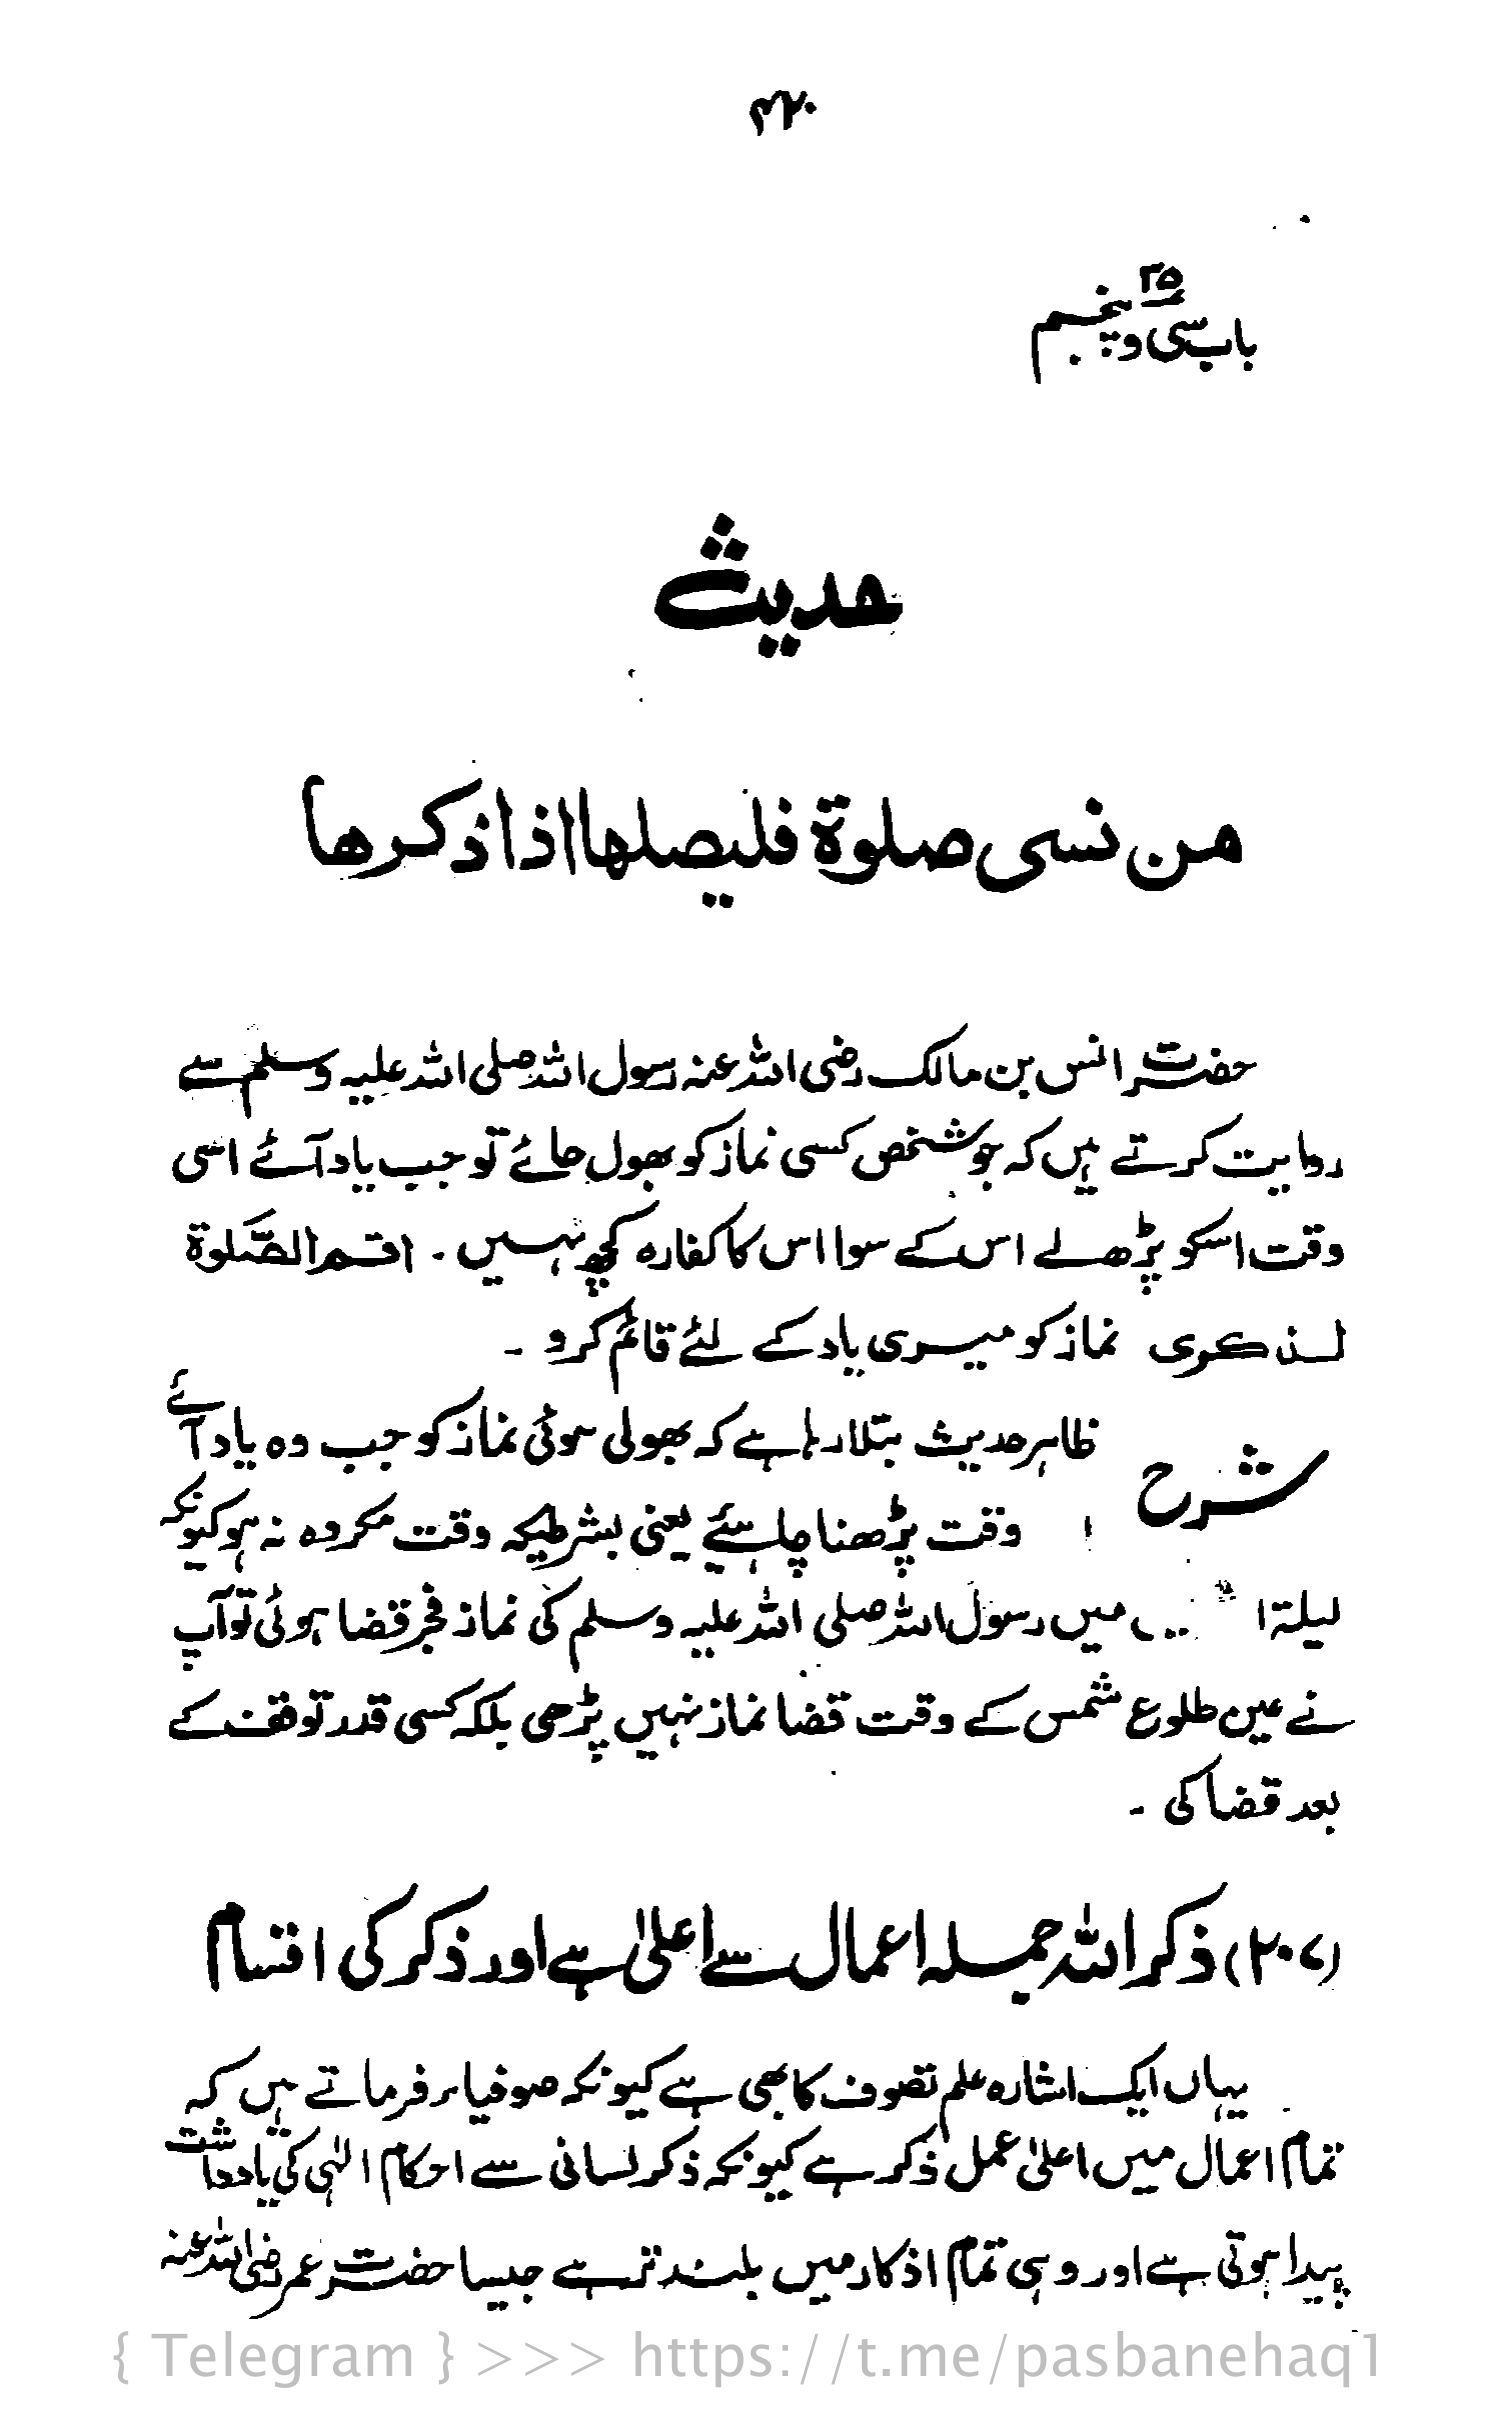 ۴۲۰
۳۵
باب سی و پنجم
حدیث
من نسی صلوة فلیصلها اذا ذکرها
حضرت انس بن مالک رضی اللہ عنہ رسول اللہ صلی اللہ علیہ وسلم سے
روایت کرتے ہیں کہ جو شخص کسی نماز کو بھول جائے تو جب یاد آئے اسی
وقت اسکو پڑھ لے اس کے سوا اس کا کفارہ کچھ نہیں ۔ اقم الصّلوة
لذکری نماز کو میری یاد کے لئے قائم کرو ۔
شرح ظاہر حدیث بتلا رہا ہے کہ بھولی ہوئی نماز کو جب وہ یاد آئے
وقت پڑھنا چاہیئے یعنی بشرطیکہ وقت مکروہ نہ ہو کیونکہ
لیلۃ میں رسول اللہ صلی اللہ علیہ وسلم کی نماز فجر قضا ہوئی تو آپ
نے عین طلوع شمس کے وقت قضا نماز نہیں پڑھی بلکہ کسی قدر توقف کے
بعد قضا کی ۔
(۲۰۷) ذکر اللہ جملہ اعمال سے اعلیٰ ہے اور ذکر کی اقسام
یہاں ایک اشارہ علم تصوف کا بھی ہے کیونکہ صوفیاء فرماتے ہیں کہ
تمام اعمال میں اعلیٰ عمل ذکر ہے کیونکہ ذکر لسانی سے احکام الٰہی کی یادداشت
پیدا ہوتی ہے اور وہی تمام اذکار میں بلند تر ہے جیسا حضرت عمر رضی اللہ عنہ
{ Telegram } >>> https://t.me/pasbanehaq1